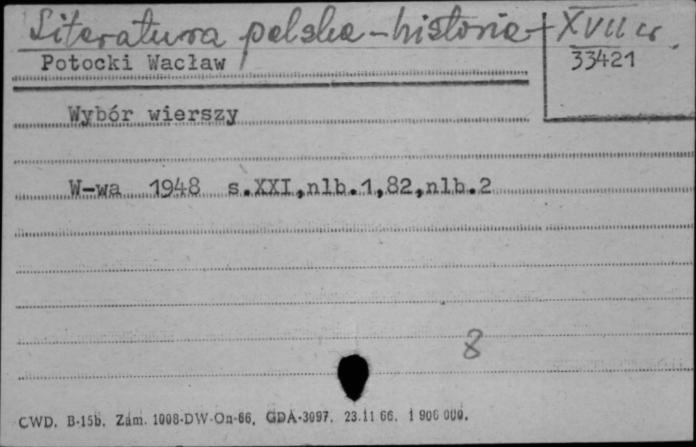 Literatura polska - historia - XVII w.
Potocki Wacław
33421
Wybór wierszy
W-wa 1948 s.XXI,nlb.1,82,nlb.2
8
CWD. B-15b. Zam. 1008-DW-On-66, GDA-3097. 23.11 66. 1 900 000.